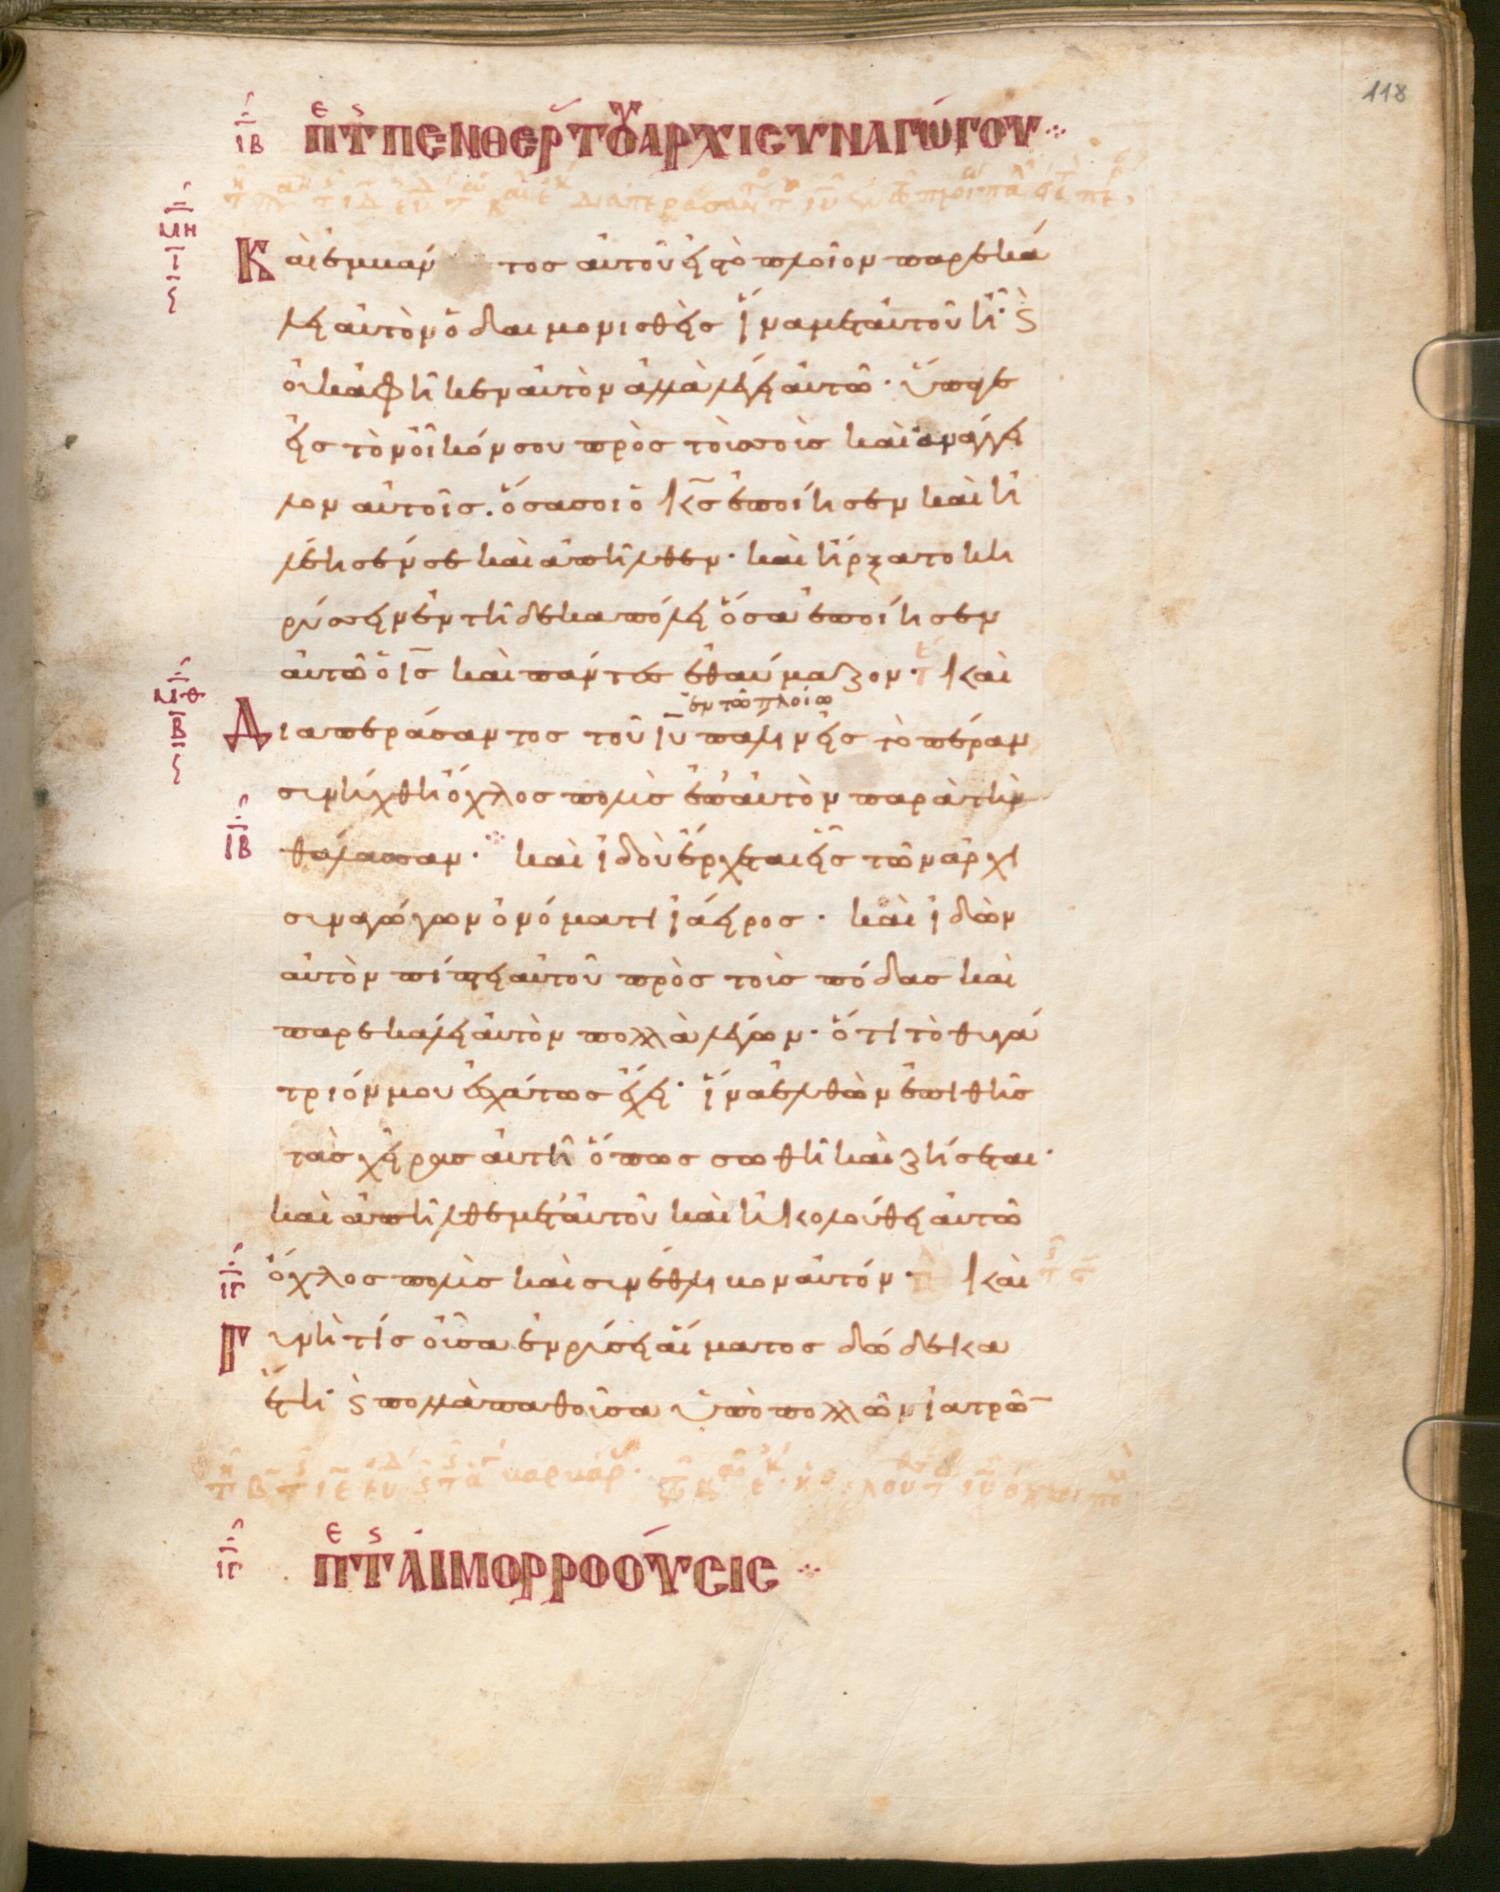 118
ΙΒ ΠΕΡΙ ΤΗΣ ΠΕΝΘΕΡ ΤΟΥ ΑΡΧΙΣΥΝΑΓΩΓΟΥ
ΜΗ
Ι
Καὶ ἐμβαν τος αὐτοῦ εἰς τὸ πλοῖον παρεκά
λει αὐτὸν ὁ δαιμονισθεὶς ἵνα μετ αὐτοῦ ἦ· ϛ
οὐκ ἀφῆκεν αὐτὸν ἀλλὰ λέγει αὐτῶ· ὕπαγε
εἰς τὸν οἶκόν σου πρὸς τοὺς σοὺς καὶ ἀνάγγει
λον αὐτοῖς. ὅσα σοι ὁ κς ἐποίησεν καὶ ἠ
λέησέν σε καὶ ἀπῆλθεν· καὶ ἤρξατο κη
ρύσσειν ἐν τῆ δεκαπόλει ὅσα ἐποίησεν
αὐτῶ ὁ ις καὶ πάντες ἐθαύμαζον· Καὶ
ΜΘ
Β
ἐν τῶ πλοίω
Διαπεράσαντος τοῦ ιυ πάλιν εἰς τὸ πέραν
συνήχθη ὄχλος πολὺς ἐπ αὐτὸν παρὰ τὴν
ΙΒ
θάλασσαν· καὶ ἰδοὺ ἔρχεται εἷς τῶν ἀρχι
συναγώγων ὀνόματι ἰάειρος· καὶ ἰδὼν
αὐτὸν πίπτει αὐτοῦ πρὸς τοὺς πόδας καὶ
παρεκάλει αὐτὸν πολλὰ λέγων· ὅτι τὸ θυγά
τριόν μου ἐσχάτως ἔχει· ἵνα ἐλθὼν ἐπιθῆς
τὰς χεῖρας αὐτῆ ὅπως σωθῆ καὶ ζήσεται·
καὶ ἀπῆλθε μετ αὐτοῦ καὶ ἠκολούθει αὐτῶ
ΙΓ ὄχλος πολὺς καὶ συνέθλιβον αὐτόν· Καὶ
Γυνὴ τίς οὖσα ἐν ρύσει αἵματος δώδεκα
ἔτη· ϛ πολλὰ παθοῦσα ὑπὸ πολλῶν ἰατρῶ
ΙΓ ΠΕΡΙ ΤΗΣ ΑΙΜΟΡΡΟΟΥΣΙΣ